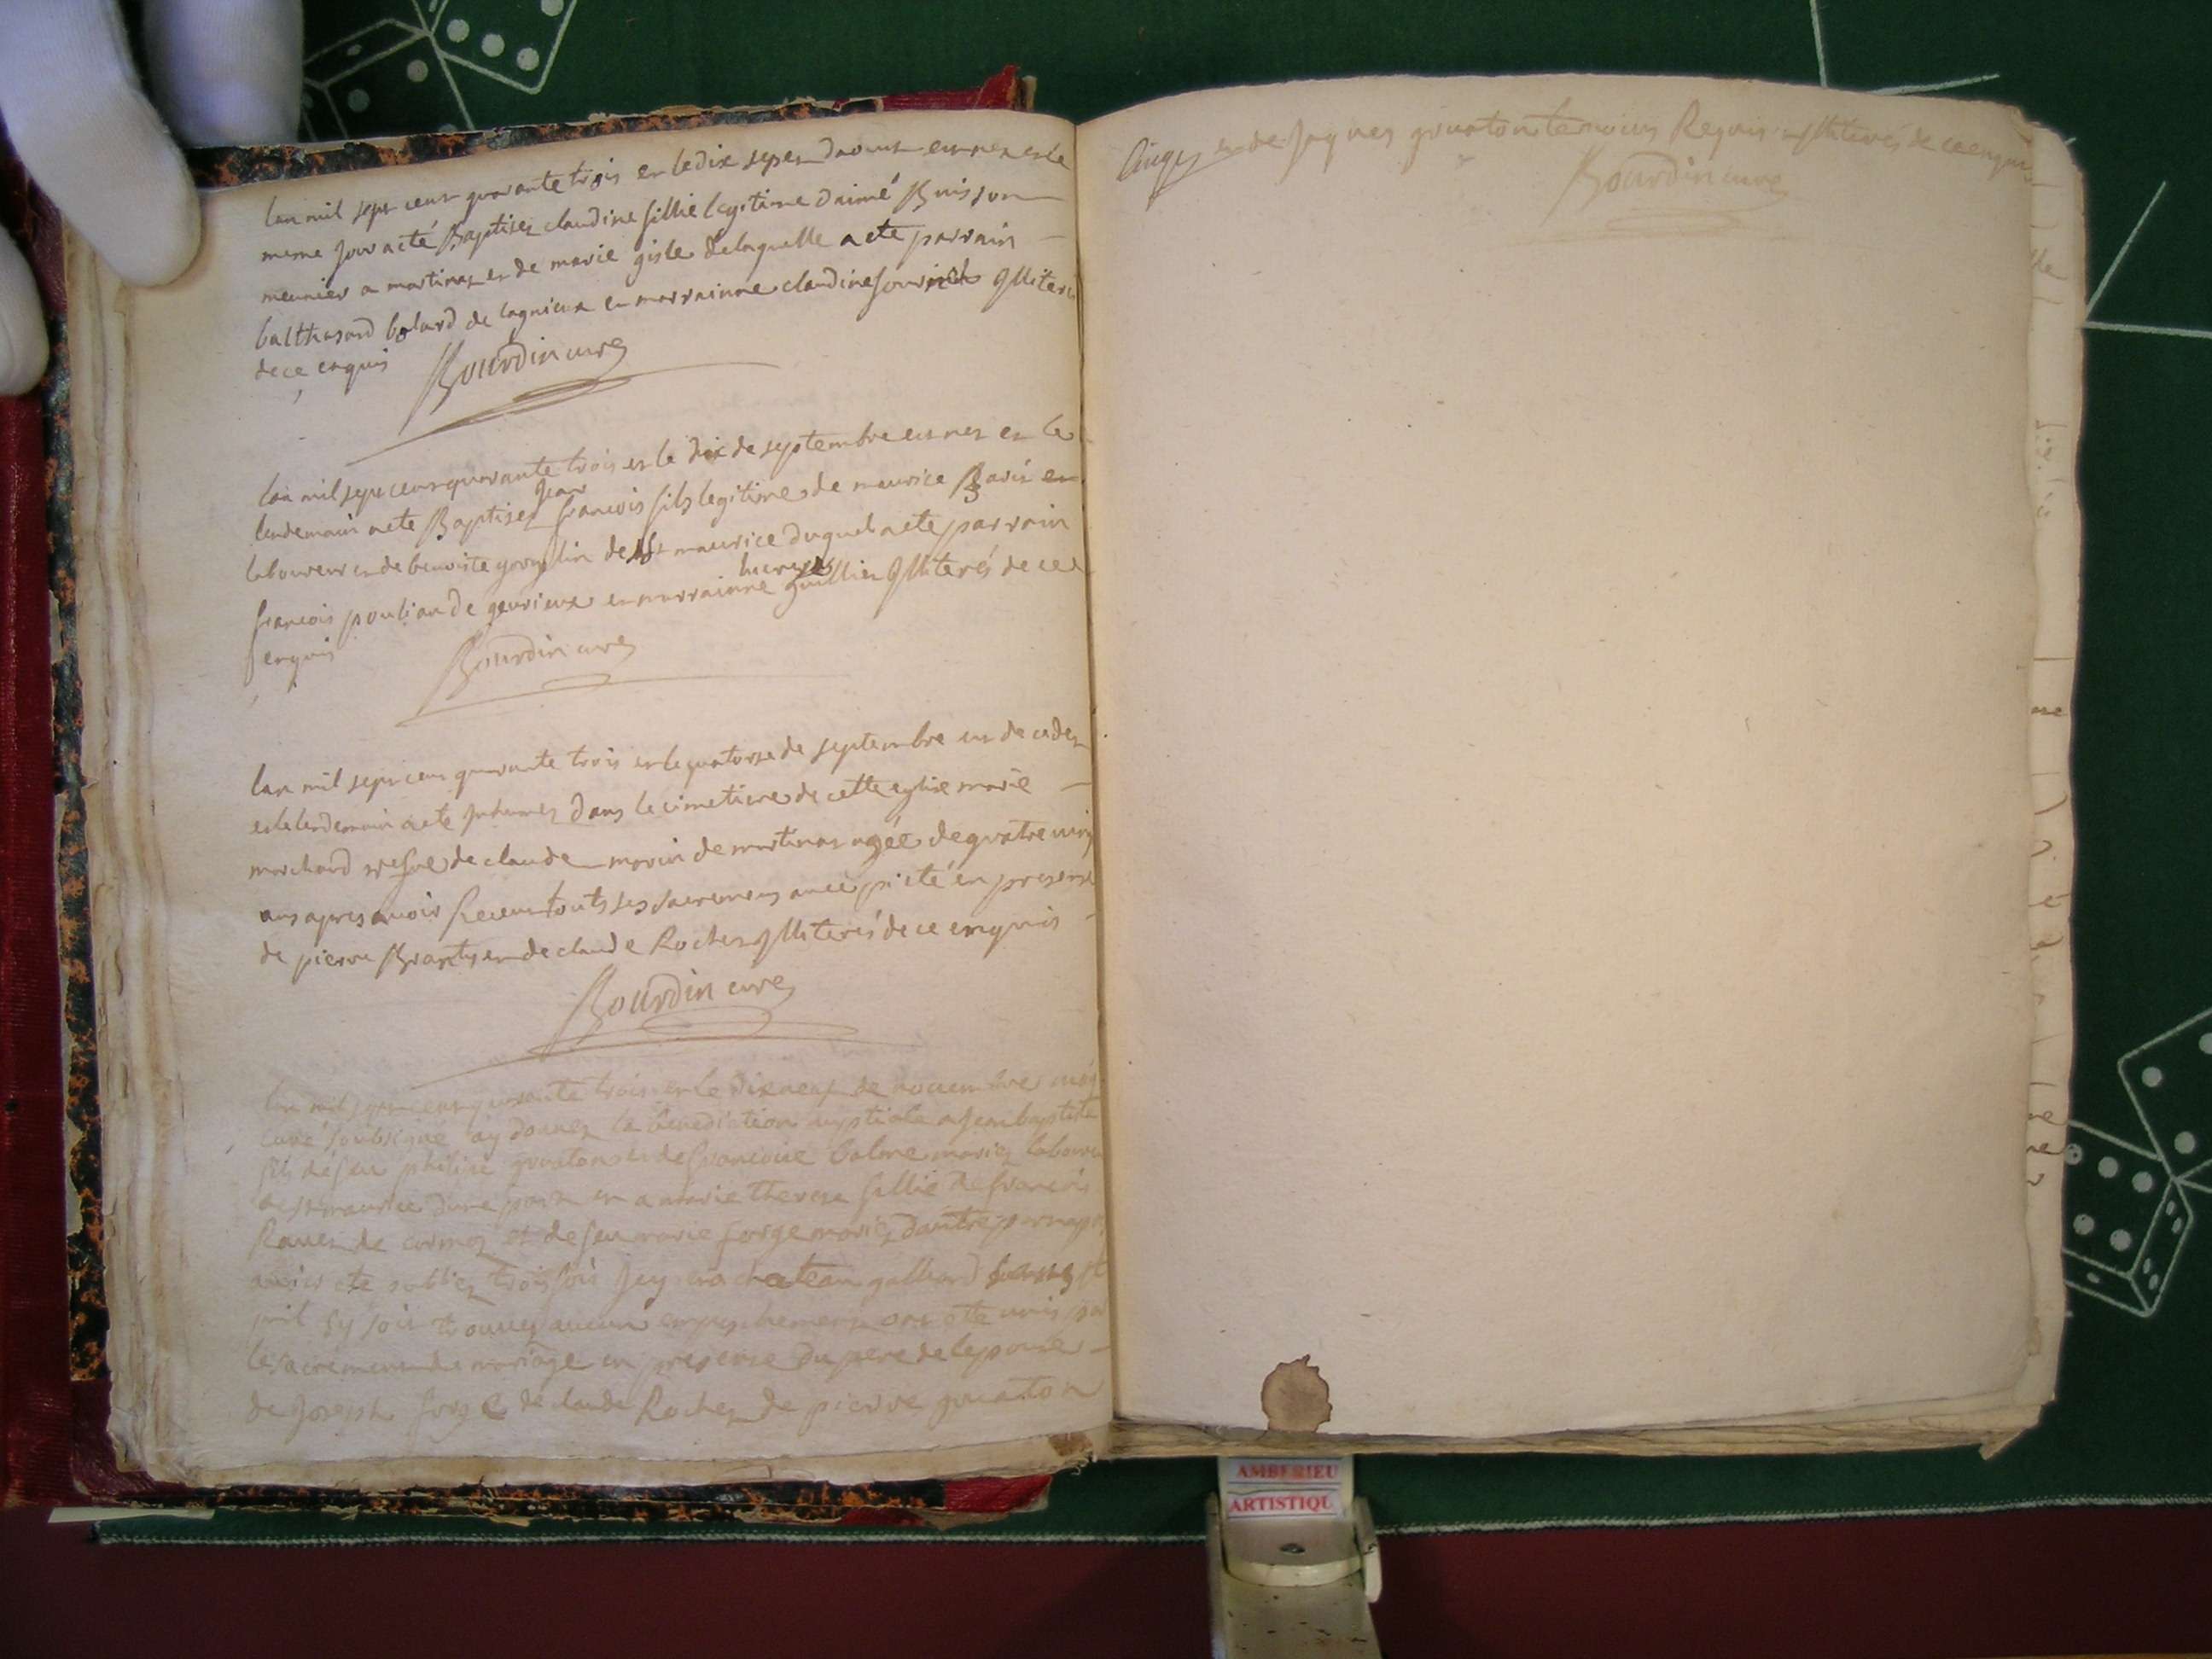 lan mil sept cent quarante trois et le dix sept daoust est nez et le
meme jour a eté Baptisez claudine fillie legitime daimé Buisson
meunier a martinas et de marie gisle delaquelle a ete parrain
balthasard bolard de lagnieux et marrainne claudine illiteré
de ce enquis Bourdin curé
lan mil sept cent quarante trois et le dix de septembre est nez et le
lendemain a ete Baptisez jean francois fils legitime de maurice
laboureur et de benoiste de st maurice duquel a ete parrain
francois poulian de gevrieux et marrainne illiterés de ce
enquis Bourdin curé
lan mil sept cent quarante trois et le quatorse de septembre est decedez
et le lendemain a ete inhumez dans le cimetiere de cette eglise marie
marchard vefve de claude morin de martinas agée de quatre ving
ans apres avoir Receu touts ses sacremens avec pieté en presense
de pierre et de claude Rochez illiterés de ce enquis
Bourdin curé
lan mil sept cent quarante trois et le dixneuf de novembre moy
curé soubsigné ay donnez la benediction nuptiale a jean baptiste
fils de feu philipe gruaton et de francoise balme mariez laboureur
de st maurice dune part et a marie therese fillie de francois
Ravet de cormoz et de feu marie forge mariez dautre part apres
avoir ete publiez trois fois icy et a chateau galliard
quil sy soit trouvez aucun empeschement ont ete unis par
le sacrement de mariage en presense du pere de lepouse
de joseph forge de claude Rochez de pierre gruaton
et de jaques gruaton temoins Requis illiterés de ce enquis
Bourdin curé
AMBERIEU
ARTISTIQU